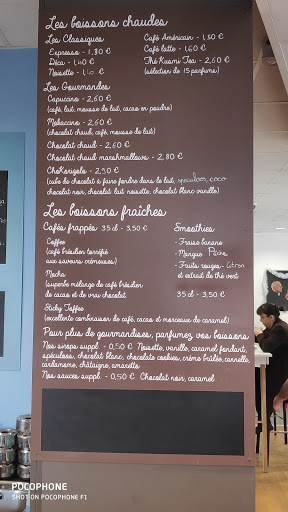 Les boissons chaudes
Les Classiques
Expresso - 1,30 €
Déca - 1,40 €
Noisette - 1,40 €
Café Américain - 1,50 €
Café latte - 1,60 €
Thé Kusmi Tea - 2,60 €
(sélection de 15 parfums)
Les Gourmandes
Capuccino - 2,60 €
(café, lait mousse de lait, cacao en poudre)
Mokaccino - 2,60 €
(chocolat chaud, café, mousse de lait)
Chocolat chaud - 2,60 €
Chocolat chaud marshmallows - 2,80 €
ChoKonigolo - 2,50 €
(cube de chocolat à faire fondre dans le lait, speculoos, coco
chocolat noir, chocolat lait noisette, chocolat blanc vanille)
Les boissons fraîches
Cafés frappés 35 cl - 3,50 €
Coffee
(café brésilien torréfié
aux saveurs crémeuses)
Mocha
(superbe mélange de café brésilien
de cacao et de vrai chocolat
Sticky Toffee
(excellente combinaison de café, cacao et morceaux de caramel)
Smoothies
- Fraise banane
- Mangue Pêche
- Fruits rouges - Citron
et extrait de thé vert
35 cl - 3,50 €
Pour plus de gourmandises, parfumez vos boissons
Nos sirops suppl. - 0,50 € Noisette, vanille, caramel fondant,
spéculoos, chocolat blanc, chocolate cookies, crème brûlée, cannelle,
cardamome, châtaigne, amaretto
Nos sauces suppl. - 0,50 € Chocolat noir, caramel
POCOPHONE
SHOT ON POCOPHONE F1